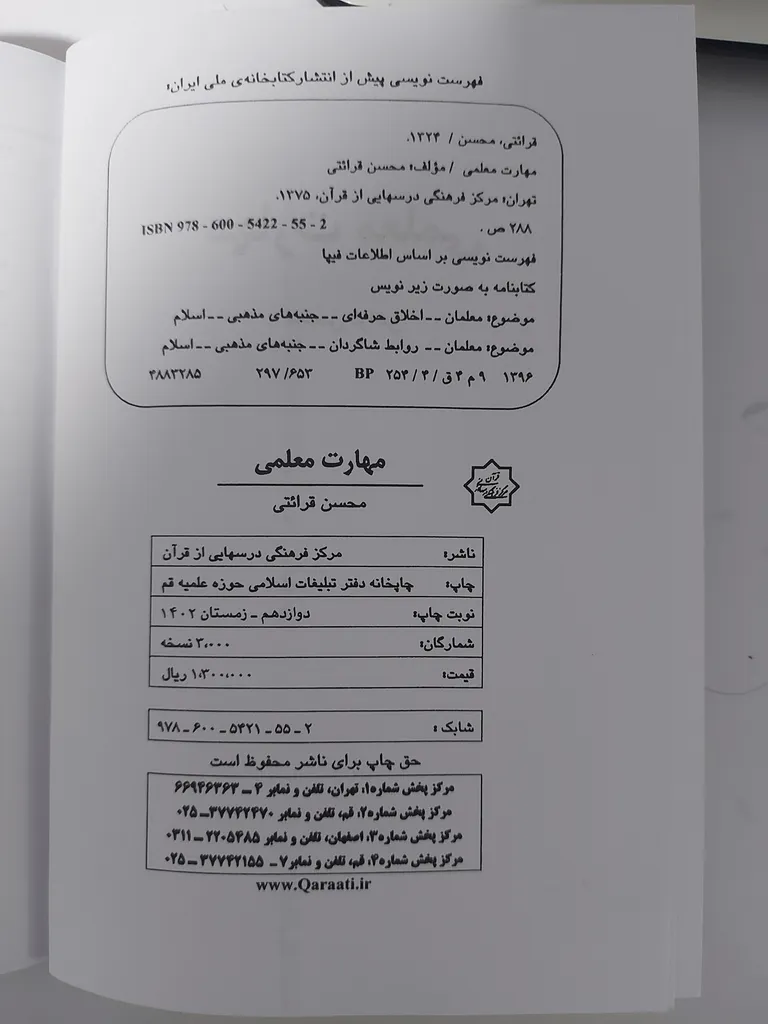 فهرست نویسی پیش از انتشارکتابخانه‌ی ملی ایران:
قرائتی، محسن / ۱۳۲۴.
مهارت معلمی / مؤلف: محسن قرائتی
تهران: مرکز فرهنگی درسهایی از قرآن، ۱۳۷۵.
۲۸۸ ص . ISBN 978 - 600 - 5422 - 55 - 2
فهرست نویسی بر اساس اطلاعات فیپا
کتابنامه به صورت زیر نویس
موضوع: معلمان -- اخلاق حرفه‌ای -- جنبه‌های مذهبی -- اسلام
موضوع: معلمان -- روابط شاگردان -- جنبه‌های مذهبی -- اسلام
۱۳۹۶ ۹ م ۴ ق / ۴ / ۲۵۴ BP ۲۹۷/۶۵۳ ۴۸۸۳۲۸۵
مهارت معلمی
محسن قرائتی
ناشر: مرکز فرهنگی درسهایی از قرآن
چاپ: چاپخانه دفتر تبلیغات اسلامی حوزه علمیه قم
نوبت چاپ: دوازدهم ـ زمستان ۱۴۰۲
شمارگان: ۳،۰۰۰ نسخه
قیمت: ۱،۳۰۰،۰۰۰ ریال
شابک : ۲ ـ ۵۵ ـ ۵۴۲۱ ـ ۶۰۰ ـ ۹۷۸
حق چاپ برای ناشر محفوظ است
مرکز پخش شماره۱، تهران، تلفن و نمابر ۴ ـ ۶۶۹۴۶۳۶۳
مرکز پخش شماره۲، قم، تلفن و نمابر ۳۷۷۴۲۴۷۰ـ ۰۲۵
مرکز پخش شماره۳، اصفهان، تلفن و نمابر ۲۲۰۵۴۸۵ ـ ۰۳۱۱
مرکز پخش شماره۴، قم، تلفن و نمابر۷ـ ۳۷۷۴۲۱۵۵ ـ ۰۲۵
www.Qaraati.ir